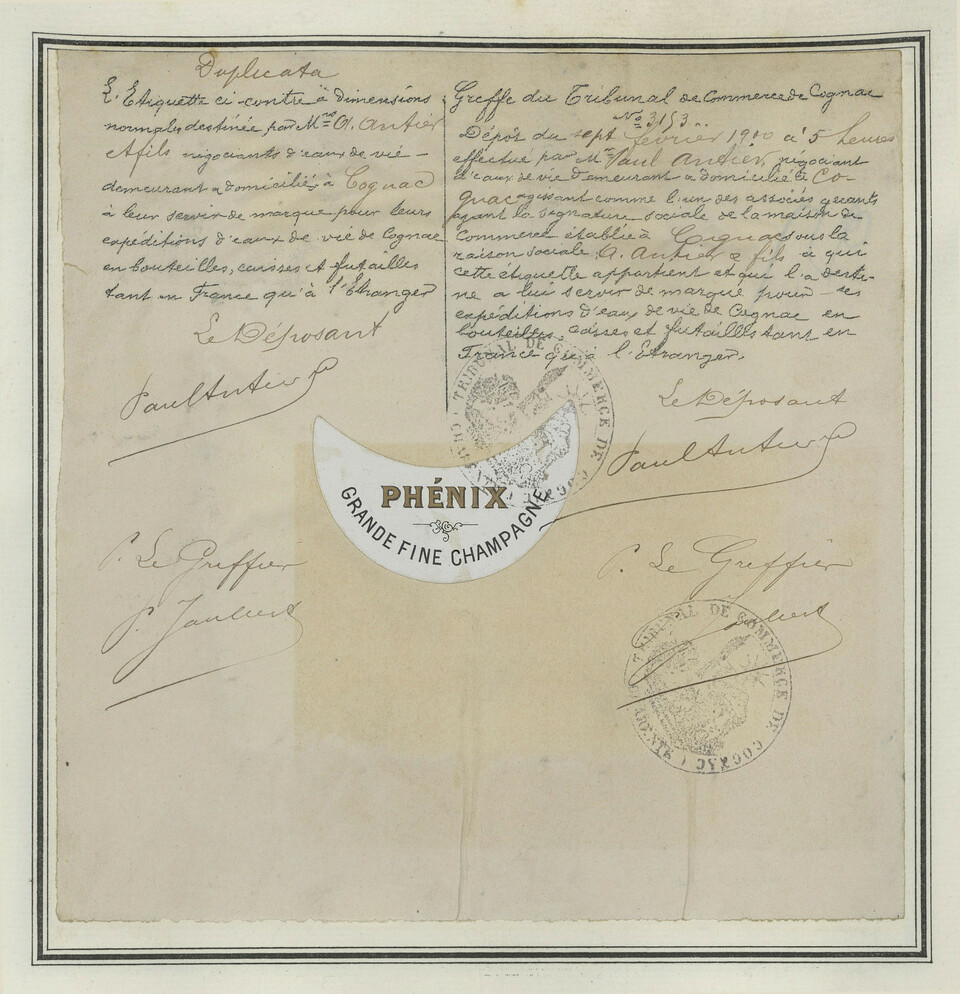 Duplicata
L'Etiquette ci-contre à dimensions
normales destinée, par Mrs A. Antier
et fils négociants d'eaux de vie -
demeurant & domiciliés à Cognac
à leur servir de marque pour leurs
expéditions d'eaux de vie de Cognac
en bouteilles, caisses et futailles
tant en France qu'à l'Etranger
Le Déposant
Paul Antier
P. Le Greffier
P. Joubert
Greffe du Tribunal de Commerce de Cognac
No 3153
Dépôt du sept février 1910 à 5 heures
effectué par Mr Paul Antier, négociant
d'eaux de vie demeurant & domicilié à Co-
gnac agissant comme l'un des associés gérants
ayant la signature sociale de la maison de
Commerce établie à Cognac sous la
raison sociale A. Antier & fils à qui
cette étiquette appartient et qui l'a desti-
né a lui servir de marque pour - ses
expéditions d'eaux de vie de Cognac en
bouteilles, caisses et futailles tant en
France qu'à l'Etranger.
Le Déposant
Paul Antier
P. Le Greffier
Joubert
PHÉNIX
GRANDE FINE CHAMPAGNE
TRIBUNAL DE COMMERCE DE COGNAC
TRIBUNAL DE COMMERCE DE COGNAC (CHARENTE)